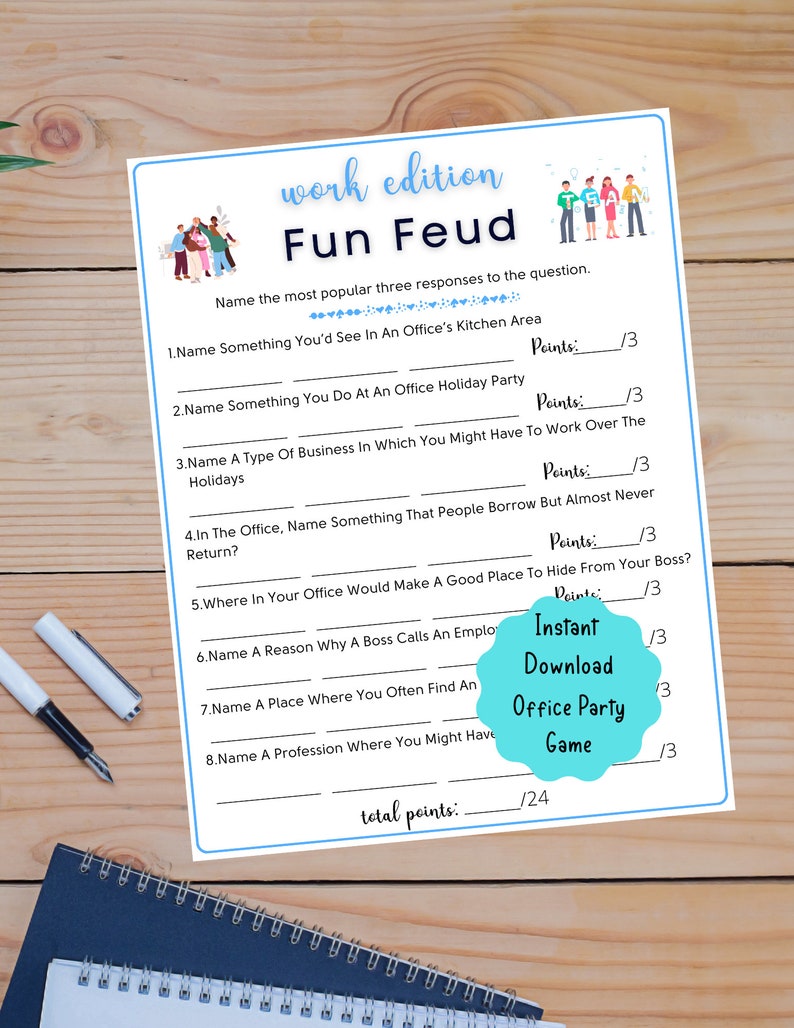 work edition
TEAM
Fun Feud
Name the most popular three responses to the question.
1.Name Something You'd See In An Office's Kitchen Area
Points:______/3
2.Name Something You Do At An Office Holiday Party
Points:______/3
3.Name A Type Of Business In Which You Might Have To Work Over The
Holidays
Points:______/3
4.In The Office, Name Something That People Borrow But Almost Never
Return?
Points:______/3
5.Where In Your Office Would Make A Good Place To Hide From Your Boss?
Points:______/3
6.Name A Reason Why A Boss Calls An
/3
7.Name A Place Where You Often Find An
/3
8.Name A Profession Where You Might Have
/3
total points: ______/24
Instant
Download
Office Party
Game